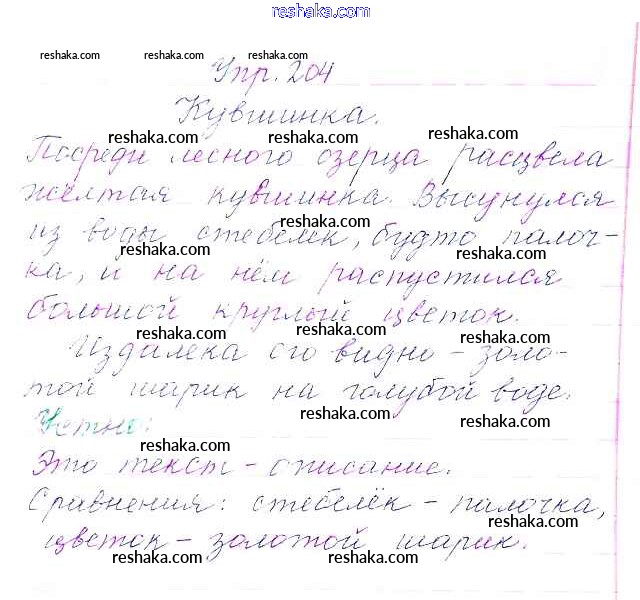 reshaka.com
reshaka.com reshaka.com reshaka.com
Упр. 204
Кувшинка.
reshaka.com reshaka.com reshaka.com
Посреди лесного озерца расцвела
reshaka.com
жёлтая кувшинка. Высунулся
reshaka.com
из воды стебелёк, будто палоч-
reshaka.com
ка, и на нём распустился
большой круглый цветок.
reshaka.com reshaka.com
Издалека его видно - золо-
той шарик на голубой воде.
reshaka.com reshaka.com
Устно:
reshaka.com
Это текст - описание.
Сравнения: стебелёк - палочка,
reshaka.com
цветок - золотой шарик.
reshaka.com reshaka.com reshaka.com